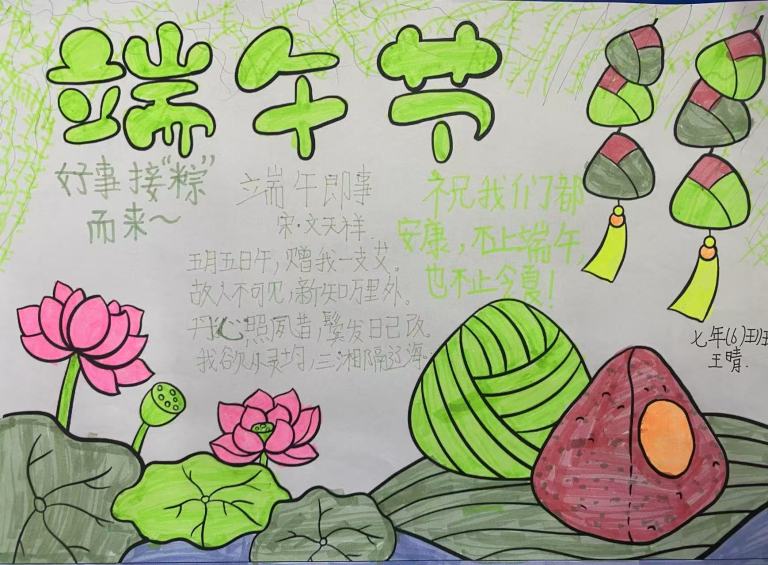 端午节
好事接“粽”
而来～
端午即事
宋·文天祥
五月五日午，赠我一支艾。
故人不可见，新知万里外。
丹心照夙昔，鬓发日已改。
我欲从灵均，三湘隔辽海。
祝我们都
安康，不止端午，
也不止今夏！
七年(6)班
王晴.